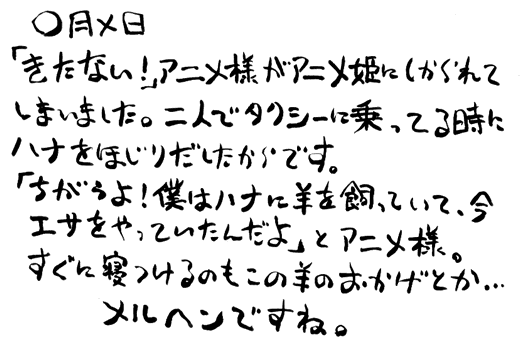 〇月×日
「きたない!」アニメ様がアニメ姫にしかられて
しまいました。二人でタクシーに乗ってる時に
ハナをほじりだしたからです。
「ちがうよ!僕はハナに羊を飼っていて、今
エサをやっていたんだよ」とアニメ様。
すぐに寝つけるのもこの羊のおかげとか…
メルヘンですね。